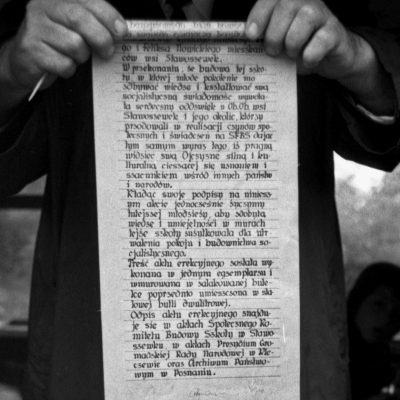 go i Feliksa Nowickiego mieszkań-
ców wsi Sławoszewek.
W przekonaniu, że budowa tej szko-
ły, w której młode pokolenie mo
zdobywać wiedzę i kształtować swą
socjalistyczną świadomość wywoła-
ła serdeczny oddźwięk u Ob.Ob. wsi
Sławoszewek i jego okolic, którzy
przodowali w realizacji czynów spo-
łecznych i świadczeń na SFBS dając
tym samym wyraz tego iż pragną
widzieć swą Ojczyznę silną i kul
turalną cieszącej się uznaniem i
szacunkiem wśród innych państw
i narodów.
Kładąc swoje podpisy na niniejszy-
m akcie jednocześnie życzymy
tutejszej młodzieży, aby zdobyta
wiedzę i umiejętności w murach
tejże szkoły zużytkowała dla utr-
walenia pokoju i budownictwa so-
cjalistycznego.
Treść aktu erekcyjnego została wy-
konana w jednym egzemplarzu i
wmurowana w zalakowanej butel-
ce poprzednio umieszczona w sta-
lowej butli dwulitrowej.
Odpis aktu erekcyjnego znajdu-
je się w aktach Społecznego Ko-
mitetu Budowy Szkoły w Sławo-
szewku, w aktach Prezydium Gro-
madzkiej Rady Narodowej w Kle-
czewie oraz Archiwum Państwo-
wym w Poznaniu.